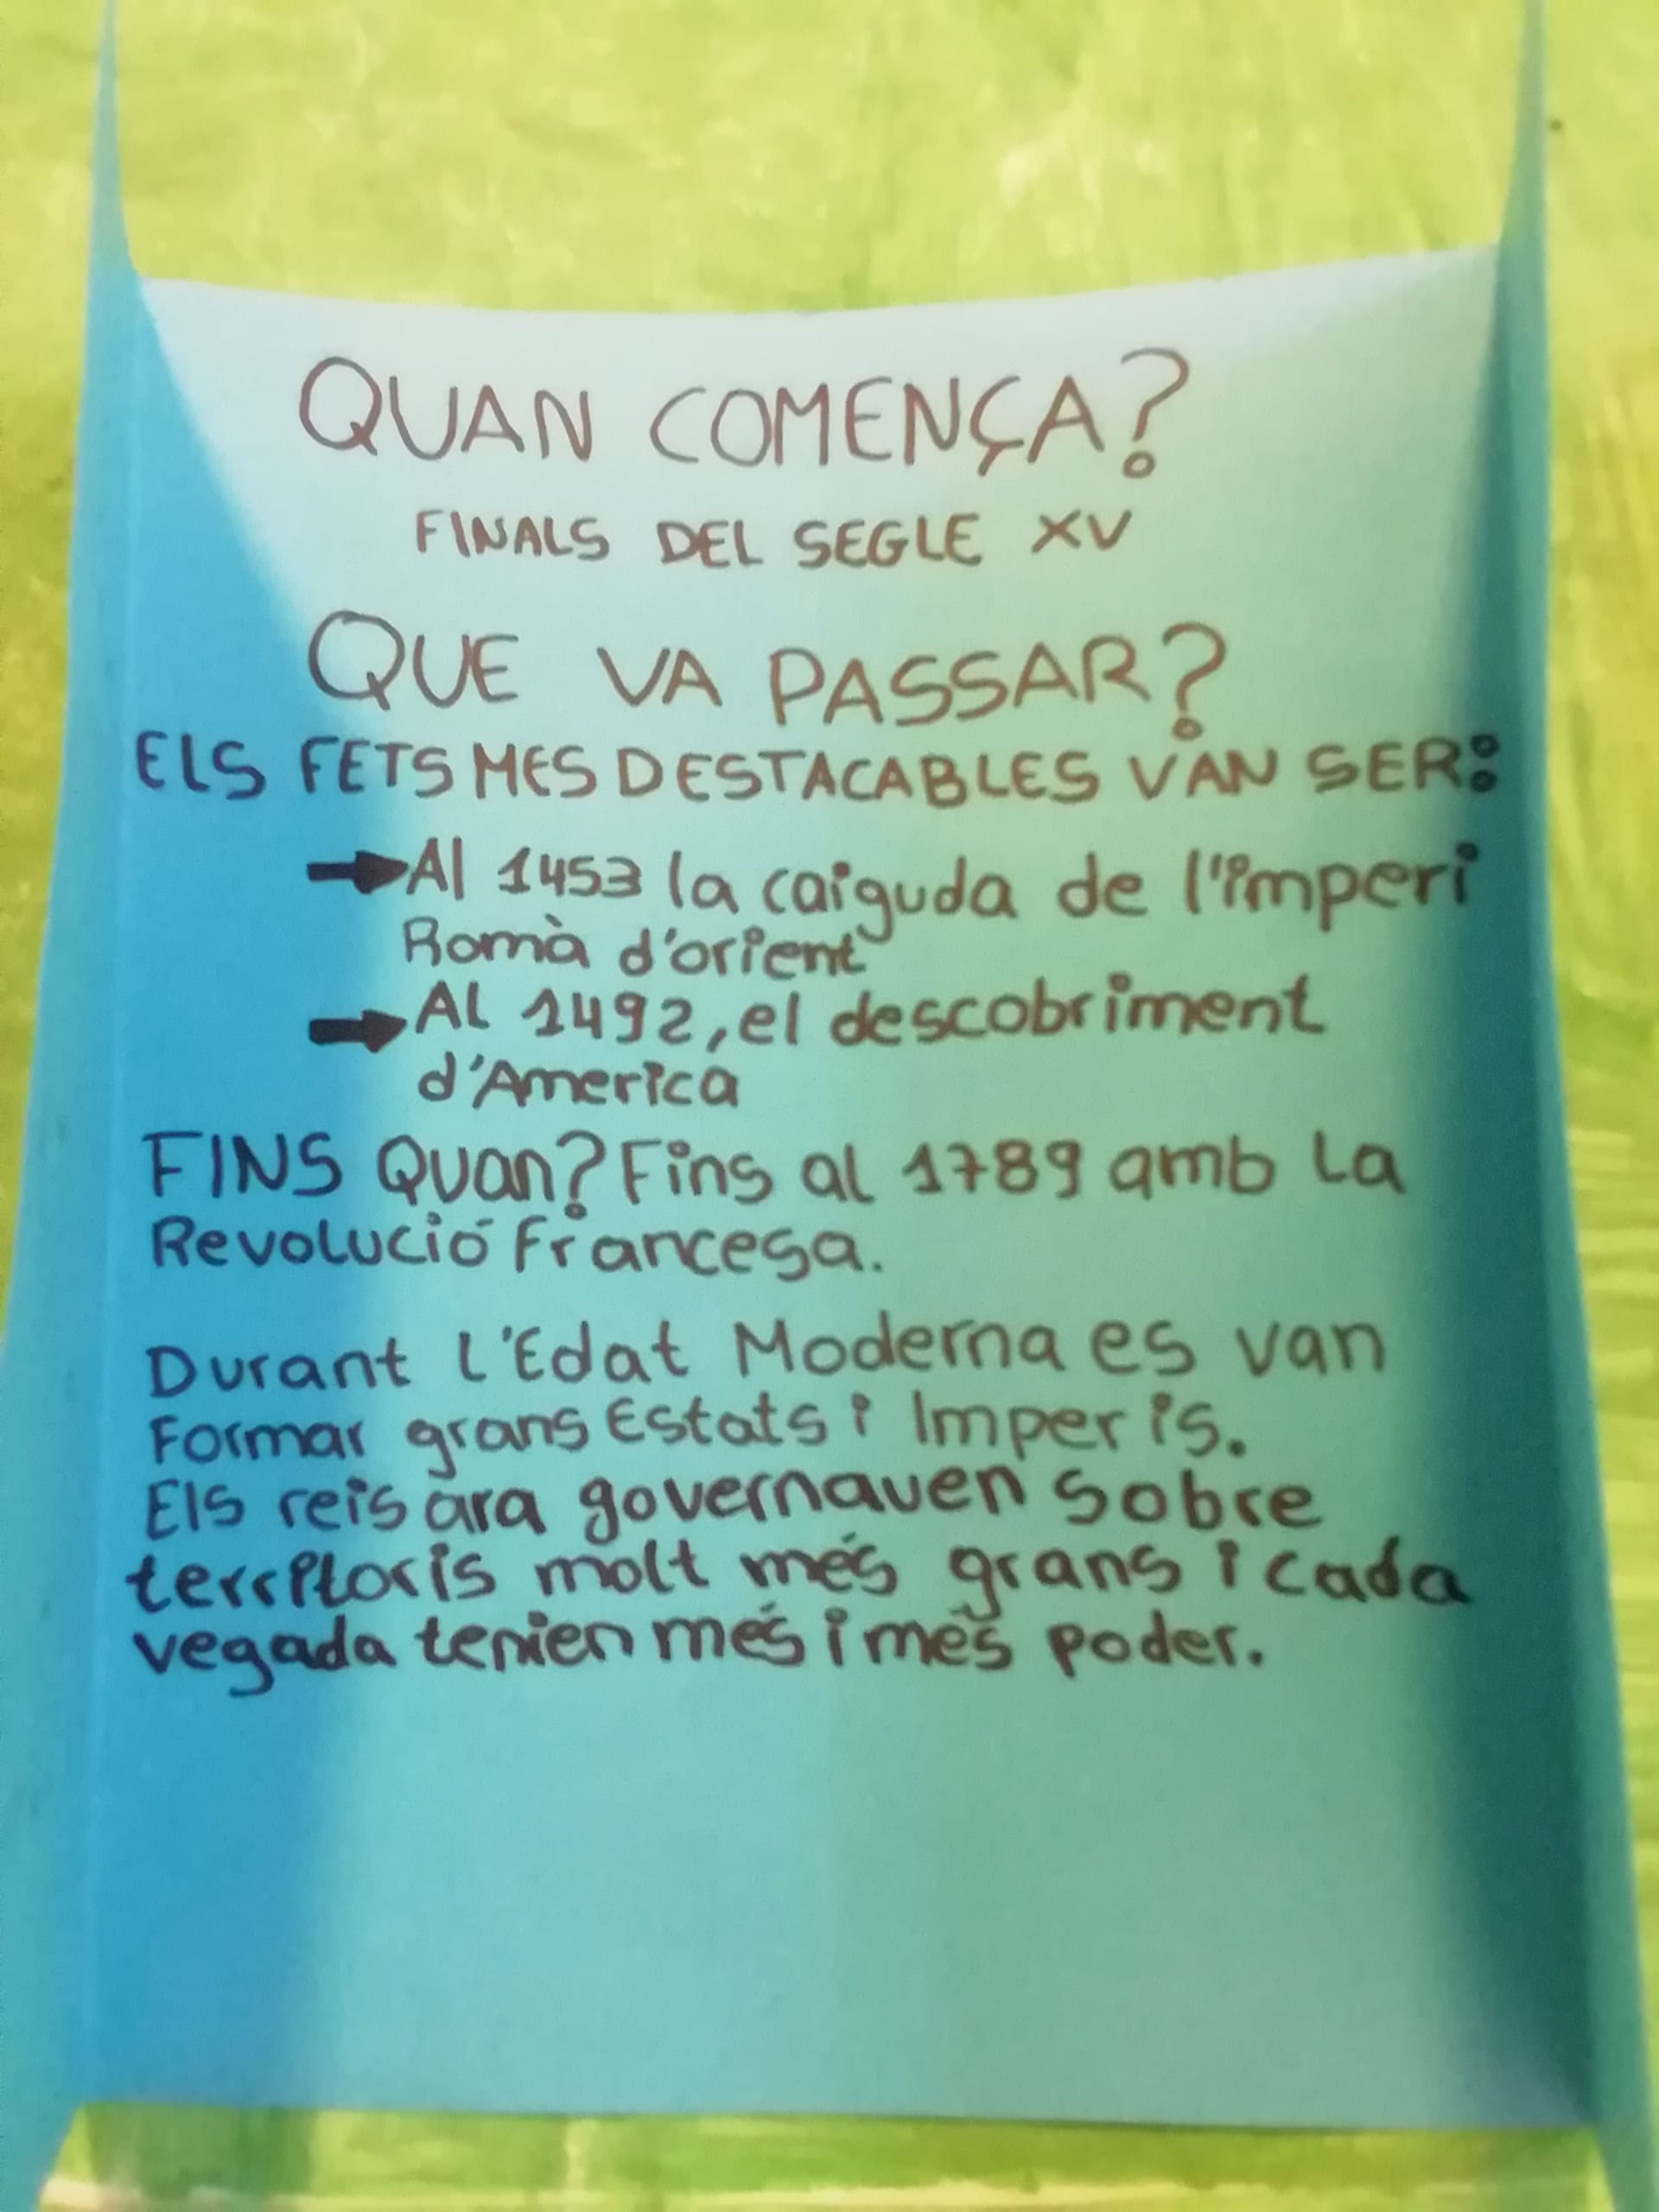 QUAN COMENÇA?
FINALS DEL SEGLE XV
QUE VA PASSAR?
ELS FETS MES DESTACABLES VAN SER:
Al 1453 la caiguda de l'imperi
Romà d'orient
AL 1492, el descobriment
d'America
FINS Quan? Fins al 1789 amb La
Revolució Francesa.
Durant L'Edat Moderna es van
Formar grans Estats i Imperis.
Els reis ara governaven sobre
territoris molt més grans i cada
vegada tenien més i més poder.